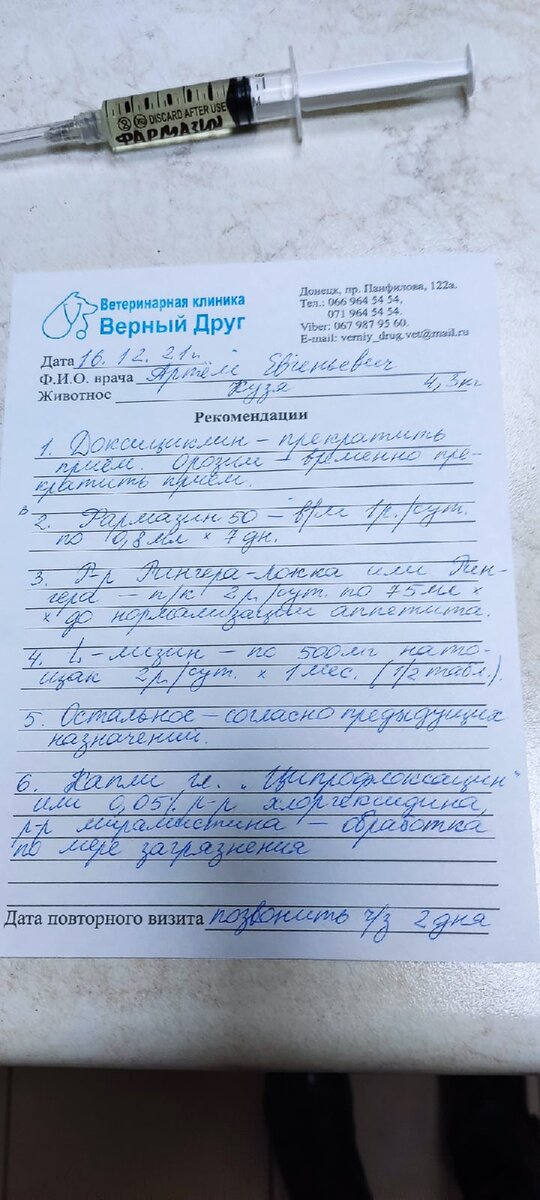 DISCARD AFTER USE
ФАРМАЗИН
Ветеринарная клиника
Верный Друг
Донецк, пр. Панфилова, 122а.
Тел.: 066 964 54 54,
071 964 54 54.
Viber: 067 987 95 60.
E-mail: verniy_drug.vet@mail.ru
Дата 16.12.21г.
Ф.И.О. врача Артём Евгеньевич
Животное Кузя 4,3кг
Рекомендации
1. Доксициклин – прекратить
приём. Орозим – временно пре-
кратить приём.
2. Фармазин 50 – в/м 1р./сут.
по 0,8мл × 7 дн.
3. Р-р Рингера-Локка или Рин-
гера – п/к 2р./сут. по 75мл ×
× до нормализации аппетита.
4. L-лизин – по 500мг нато-
щак 2р./сут. × 1 мес. (1/2 табл.).
5. Остальное – согласно предыдущих
назначений.
6. Капли гл. "Ципрофлоксацин"
или 0,05% р-р хлоргексидина,
р-р мирамистина – обработка
по мере загрязнения
Дата повторного визита позвонить ч/з 2 дня